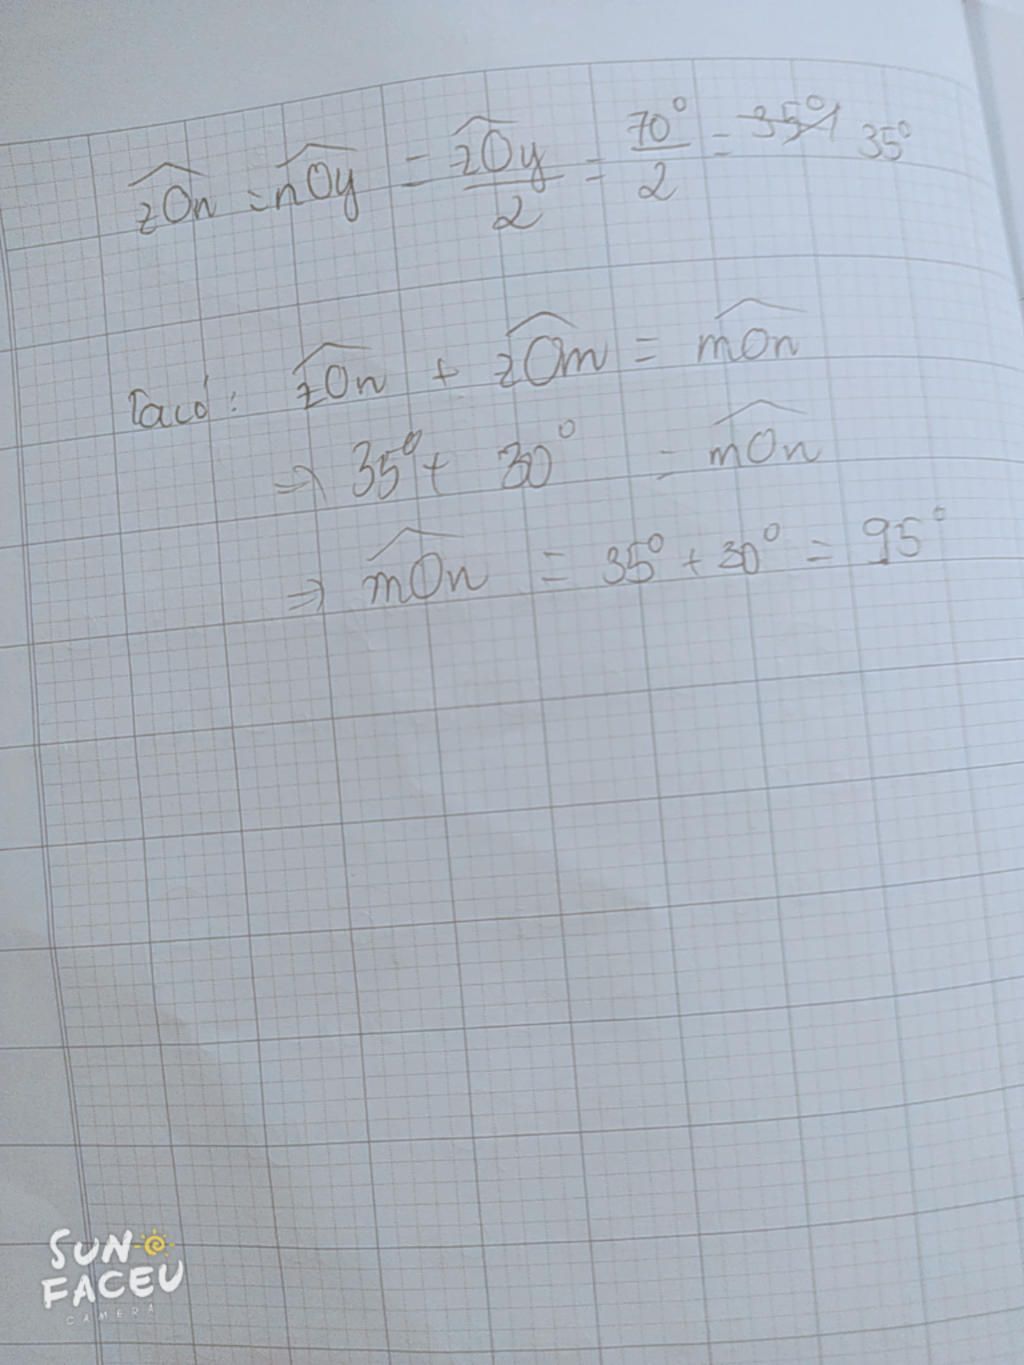 zOn = nOy = zOy/2 = 70°/2 = 35° 35°
Ta có: zOn + zOm = mOn
=> 35° + 30° = mOn
=> mOn = 35° + 30° = 95°
SUN
FACEU
CAMERA